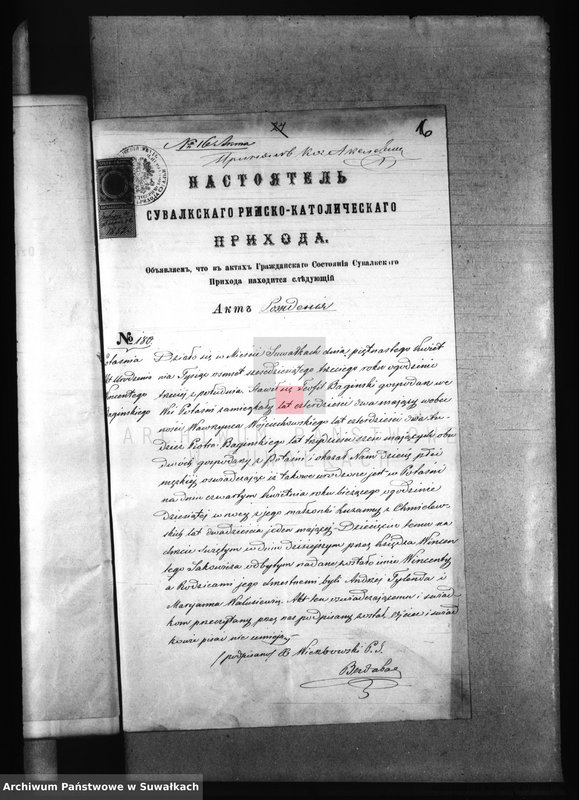 № 16
16
НАСТОЯТЕЛЬ
СУВАЛКСКАГО РИМСКО-КАТОЛИЧЕСКАГО
ПРИХОДА.
Объявляем, что въ актахъ Гражданскаго Состоянія Сувалкскаго
Прихода находится слѣдующій
Актъ Рожденія
№ 180
Potasznia Działo się w Mieście Suwałkach dnia piętnastego kwiet
nia Tysiąc ośmset sześdziesiątego trzeciego roku o godzinie
trzeciej z południa. Stawił się Teofil Bagiński gospodarz we
Wsi Potaszni zamieszkały lat czterdzieści dwa mający w obec
ności Wawrzyńca Wojciechowskiego lat czterdzieści dwa tu
dzież Piotra Bagińskiego lat trzydzieści mających obu
dwóch gospodarzy z Potaszni i okazał Nam dziecię płci
męzkiej oświadczając iż takowe urodzone jest w Potaszni
na dniu czwartym kwietnia roku bieżącego o godzinie
dziesiątej w nocy z jego małżonki z Chmielew
skich lat dwadzieścia jeden mającej. Dziecięciu temu na
chrzcie świętym w dniu dzisiejszym przez księdza Wincen
tego odbytym nadane zostało imie Wincenty
a Rodzicami jego chrzestnemi byli Andrzej i
Maryanna. Akt ten oświadczającemu i świad
kom przeczytany przez nas podpisany został ojciec i świad
kowie pisać nie umieją
/podpisano/ P. S.
Archiwum Państwowe w Suwałkach